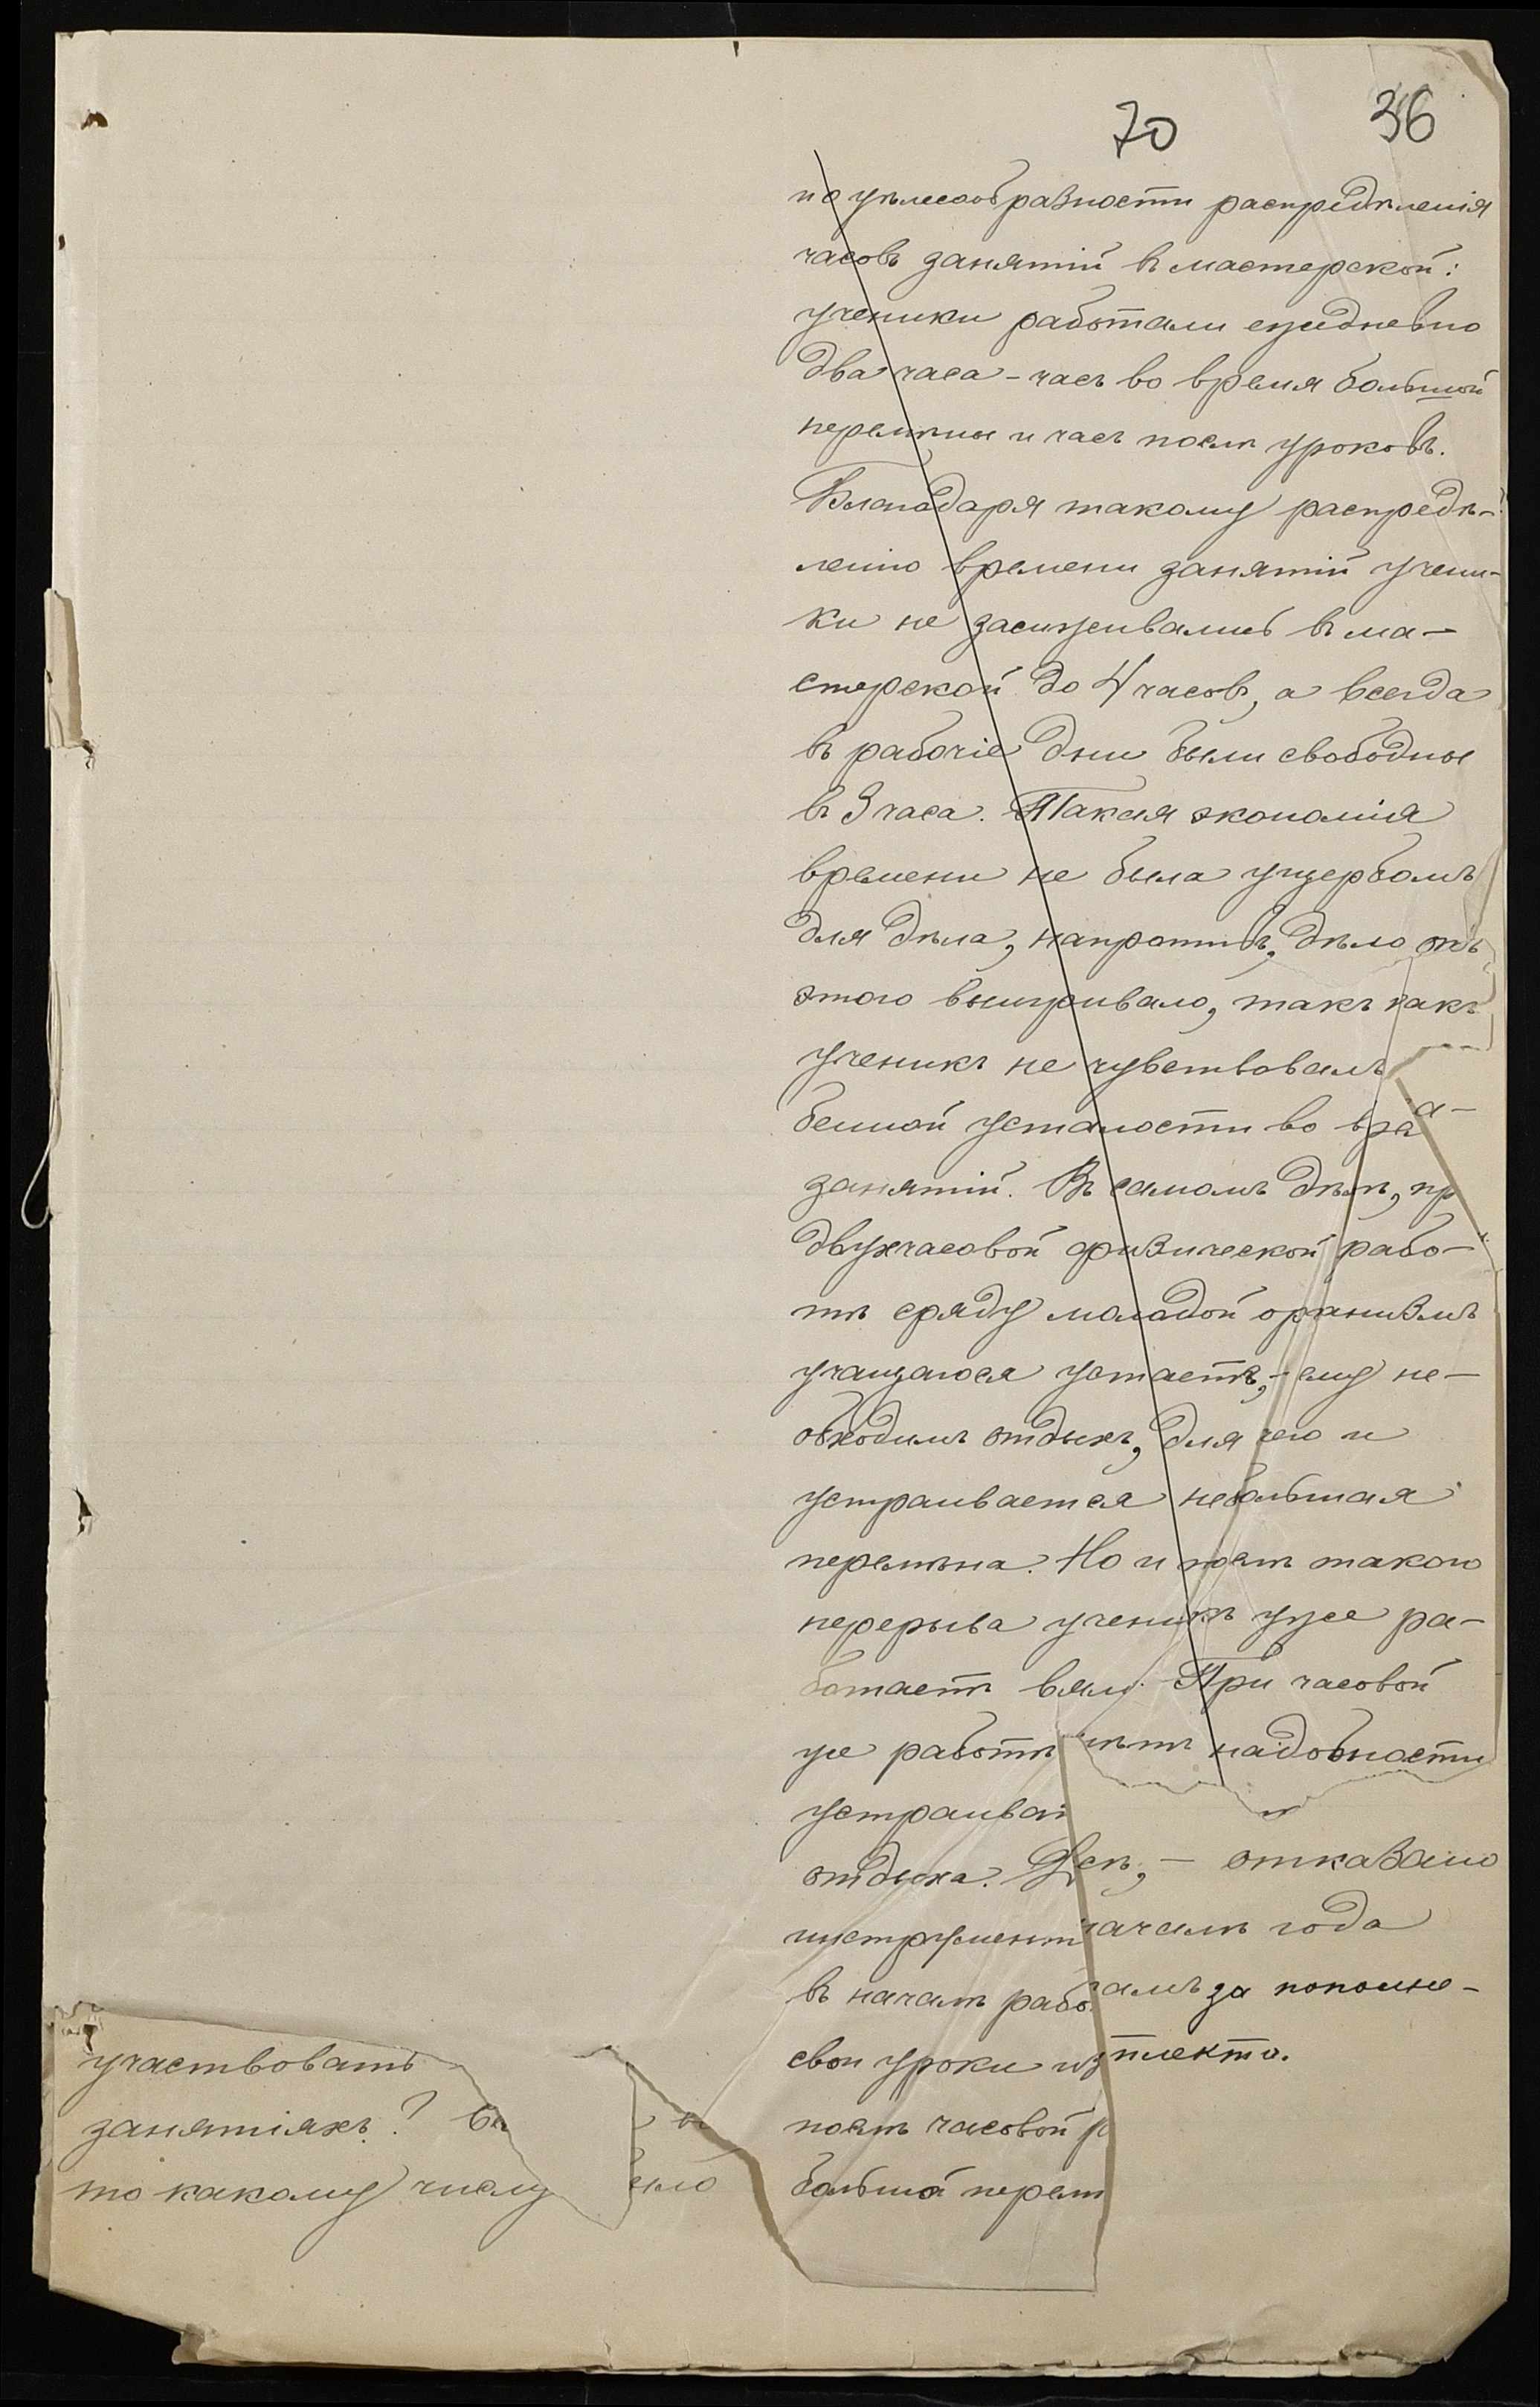 70 36
по цѣлесообразности распредѣленія
часовъ занятій въ мастерской:
ученики работали ежедневно
два часа - часъ во время большой
перемѣны и часъ послѣ уроковъ.
Благодаря такому распредѣ-
ленію времени занятій учени-
ки не засиживались въ ма-
стерской до 4 часовъ, а всегда
въ рабочіе дни были свободны
въ 3 часа. Такая экономія
времени не была ущербомъ
для дѣла, напротивъ, дѣло отъ
этого выигрывало, такъ какъ
ученикъ не чувствовалъ
бенной усталости во вре а-
занятій. Въ самомъ дѣлѣ, пр
двухчасовой физической рабо-
тѣ сряду молодой организмъ
учащагося устаетъ,- ему не-
обходимъ отдыхъ, для чего и
устраивается небольшая
перемѣна. Но и послѣ такого
перерыва ученикъ уже ра-
ботаетъ вяло. При часовой
же работѣ нѣтъ надобности
устраиват
отдыха. сп, - отказано
инструмент ачалѣ года
въ началѣ рабо амъ за пополне-
свои уроки из плекта.
послѣ часовой р
большой перем
участвовать
занятіяхъ? Бы
то какому числу ыло